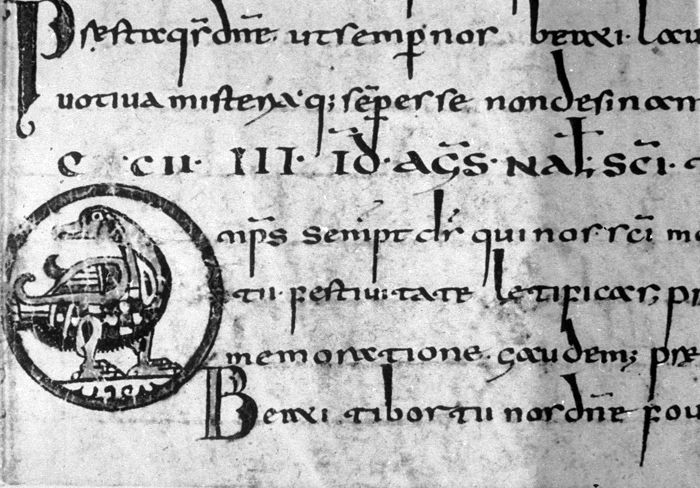 Praesta q̄s dn̄e. ut semp nos beati. Lau
uotiua misteria. q; sēper esse non desinan
C CII. III. ID. AGS. NAT. SCI.
Omp̄s semp̄t ds̄ qui nos sci m
tii festiuitate letificas; pr
memoratione. gaudem; prae
Beati tibortii nos dn̄e fou